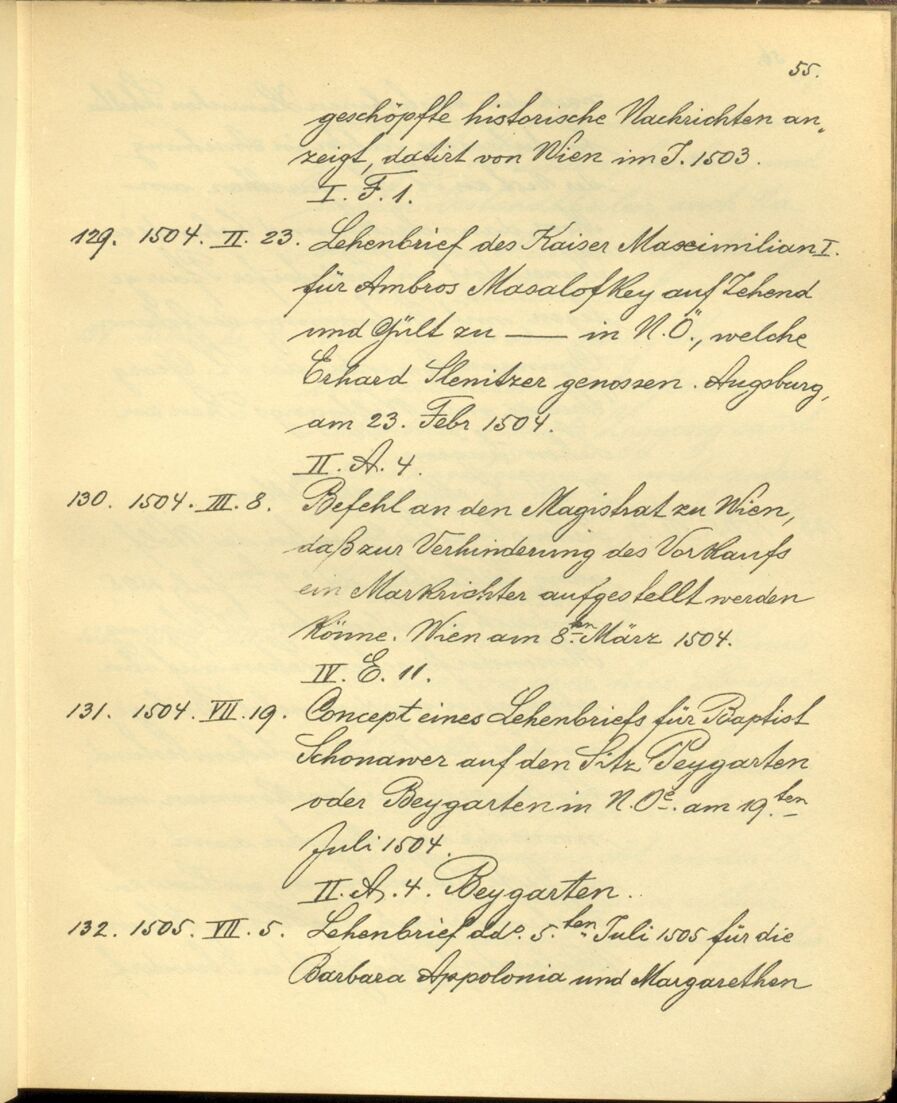 55.
geschöpfte historische Nachrichten an„
zeigt, datirt von Wien im J. 1503.
I. F. 1.
129. 1504. II. 23. Lehenbrief des Kaiser Maximilian I.
für Ambros Masalofkey auf Zehend
und Gült zu —— in N.Ö., welche
Erhard Slenitzer genossen. Augsburg,
am 23. Febr 1504.
II. A. 4.
130. 1504. III. 8. Befehl an den Magistrat zu Wien,
daß zur Verhinderung des Vorkaufs
ein Markrichter aufgestellt werden
könne. Wien am 8ten März 1504.
IV. E. 11.
131. 1504. VII. 19. Concept eines Lehenbriefs für Baptist
Schonawer auf den Sitz Peygarten
oder Beygarten in N. Oe. am 19.ten
Juli 1504.
II. A. 4. Beygarten.
132. 1505. VII. 5. Lehenbrief ddo. 5.ten Juli 1505 für die
Barbara Appolonia und Margarethen